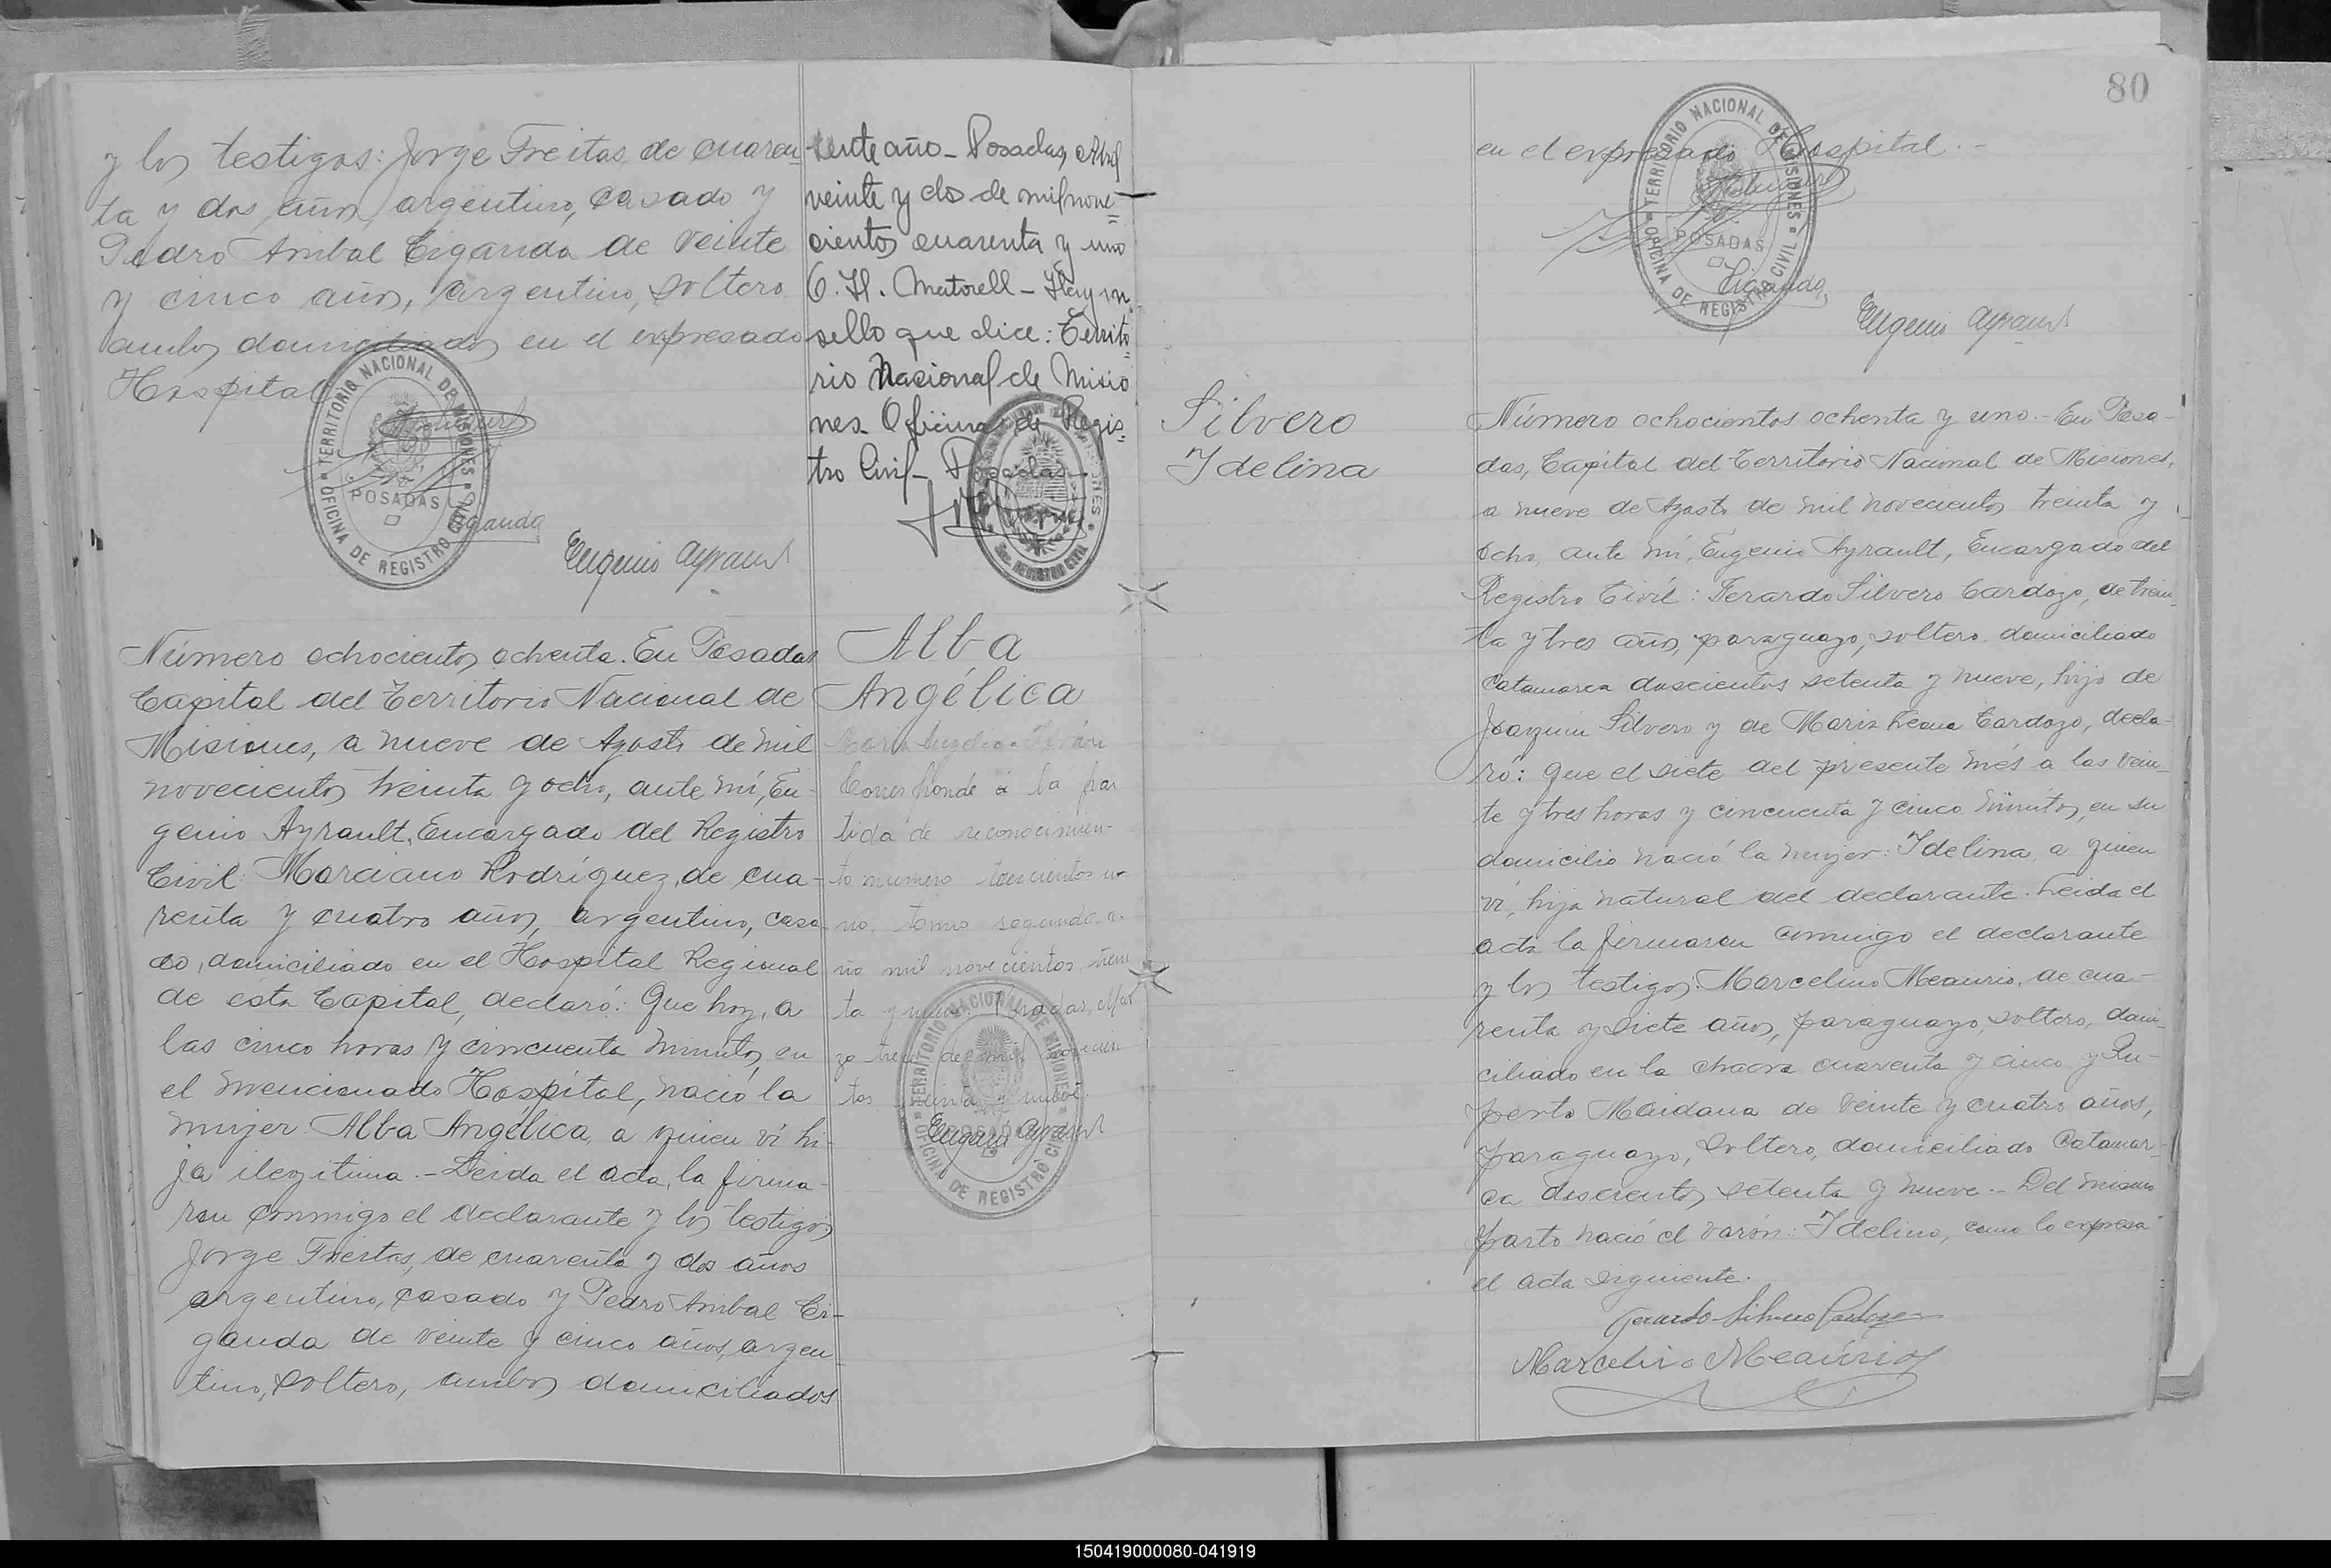 y los testigos: Jorge Freitas de cuaren-
ta y dos años, argentino, casado y
Pedro Anibal Ciganda de veinte
y cinco años, argentino, soltero
ambos domiciliados en el expresado
Hospital
TERRITORIO NACIONAL DE MISIONES
POSADAS
OFICINA DE REGISTRO CIVIL
Ciganda
Eugenio Ayrault
Número ochocientos ochenta. En Posadas
Capital del Territorio Nacional de
Misiones, a nueve de Agosto de mil
novecientos treinta y ocho, ante mí, Eu-
genio Ayrault, Encargado del Registro
Civil: Marciano Rodríguez, de cua-
renta y cuatro años, argentino, casa-
do, domiciliado en el Hospital Regional
de ésta Capital, declaró: Que hoy, a
las cinco horas y cincuenta minutos, en
el mencionado Hospital, nació la
mujer Alba Angélica, a quien ví hi-
ja ilegitima.- Leida el acta, la firma-
ron conmigo el declarante y los testigos
Jorge Freitas, de cuarenta y dos años
argentino, casado y Pedro Anibal Ci-
ganda de veinte y cinco años, argen-
tino, soltero, ambos domiciliados
sente año - Posadas, Abril
veinte y dos de mil nove=
cientos cuarenta y uno
C. H. Martorell - Hay un
sello que dice: Territo=
rio Nacional de Misio
nes. Oficina de Regis=
tro Civil - Posadas -
Alba
Angélica
Maria Angelica
Corresponde á la par
tida de reconocimien-
to número trescientos u-
no, tomo segundo, a-
ño mil novecientos trein
ta y nueve. Posadas, Mar
zo trece de mil novecien
tos treinta y nueve.
Eugenio Ayrault
TERRITORIO NACIONAL DE MISIONES
POSADAS
OFICINA DE REGISTRO CIVIL
80
en el expresado Hospital.-
TERRITORIO NACIONAL DE MISIONES
POSADAS
OFICINA DE REGISTRO CIVIL
Ciganda
Eugenio Ayrault
Silvero
Idelina
Número ochocientos ochenta y uno.- En Posa-
das, Capital del Territorio Nacional de Misiones,
a nueve de Agosto de mil novecientos treinta y
ocho, ante mí, Eugenio Ayrault, Encargado del
Registro Civil: Gerardo Silvero Cardozo, de trein-
ta y tres años, paraguayo, soltero, domiciliado
Catamarca doscientos setenta y nueve, hijo de
Joaquin Silvero y de Maria Leona Cardozo, decla-
ró: Que el siete del presente més a las vein-
te y tres horas y cincuenta y cinco minutos, en su
domicilio nació la mujer: Idelina, a quien
ví, hija natural del declarante. Leida el
acta la firmaron conmigo el declarante
y los testigos: Marcelino Meaurio, de cua-
renta y siete años, paraguayo, soltero, domi-
ciliado en la chacra cuarenta y cinco y Ru-
perto Maidana de veinte y cuatro años,
paraguayo, soltero, domiciliado Catamar-
ca doscientos setenta y nueve.- Del mismo
parto nació el varón: Idelino, como lo expresa
el acta siguiente.
Gerardo Silvero Cardozo
Marcelino Meaurio